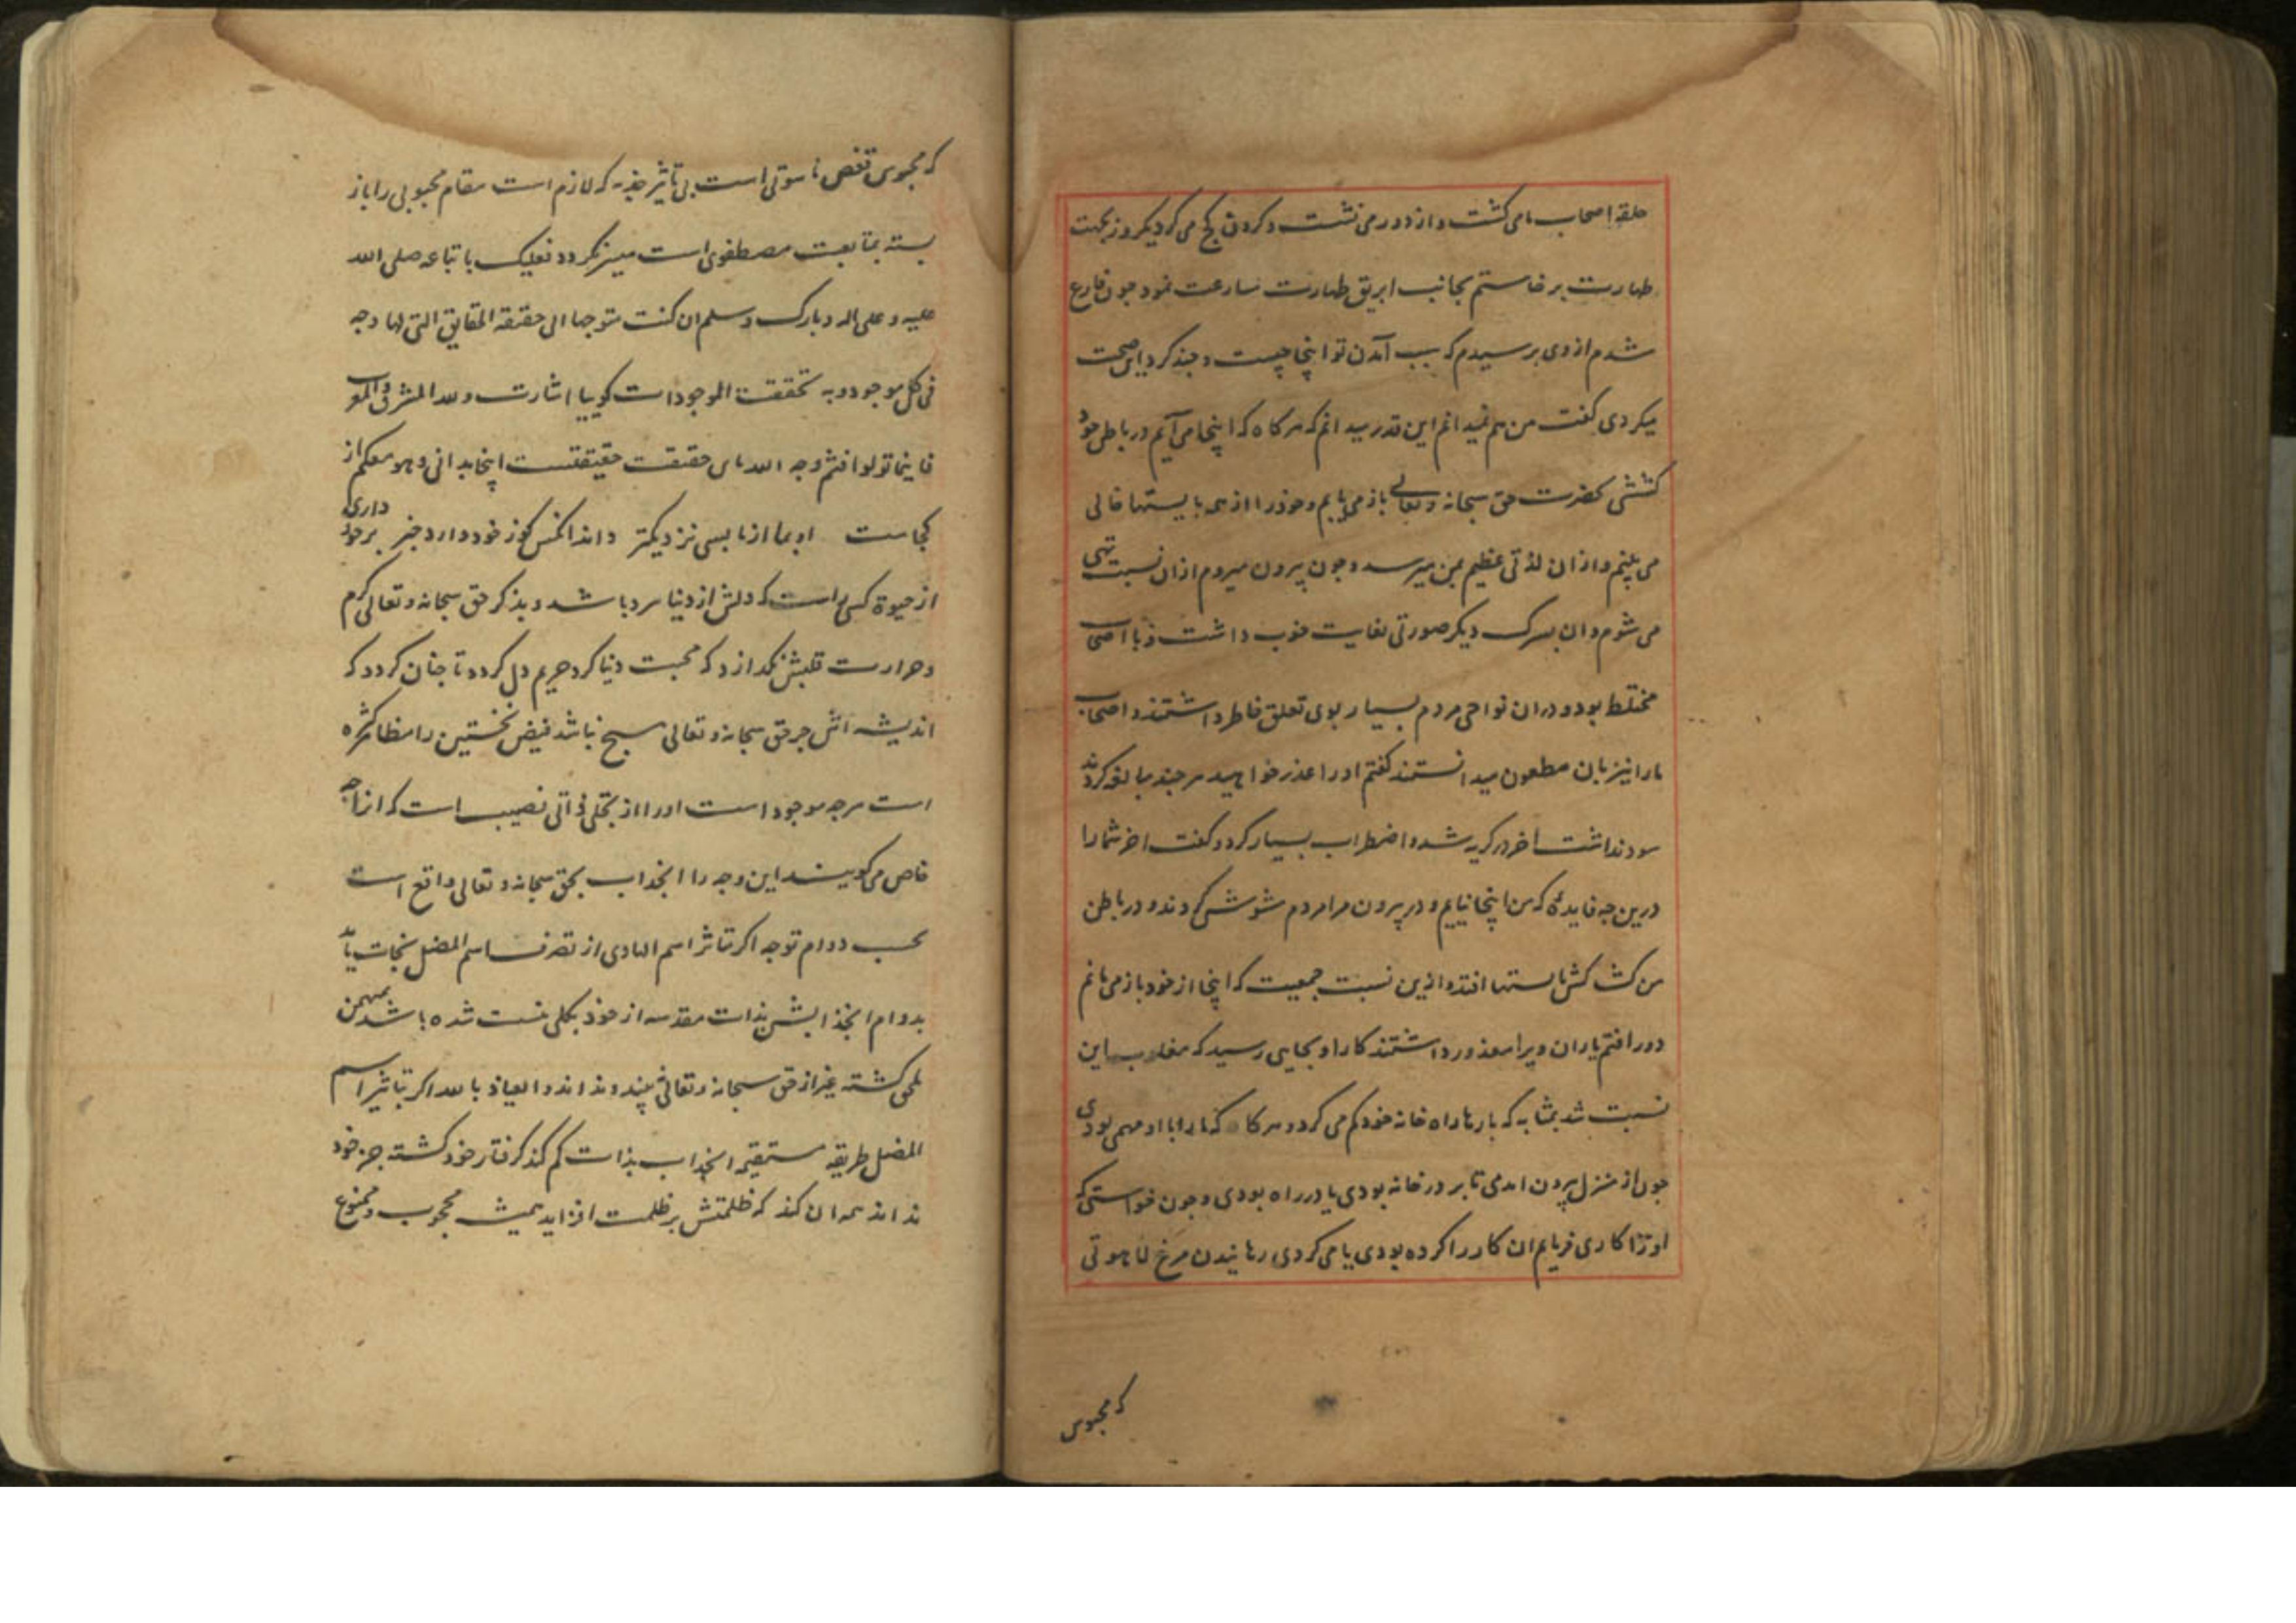 حلقه اصحاب ما می کشت و از دور می نشست و کردن کج می کرد یکروز بجهت
طهارت بر خاستم بجانب ابریق طهارت مسارعت نمود چون فارغ
شدم از وی پرسیدم که سبب آمدن تو اینجا چیست و چند کرد این صحبت
میکردی کفت من هم نمیدانم این قدر میدانم که هر کاه که اینجا می آیم در باطن خود
کششی بحضرت حق سبحانه و تعالی باز می یابم و خود را از همه بایستها خالی
می بینم و از ان لذتی عظیم بمن میرسد و چون بیرون میروم ازان نسبت تهی
می شوم و ان پسرک دیکر صورتی بغایت خوب داشت و با اصحاب
مختلط بود و دران نواحی مردم بسیار بوی تعلق خاطر داشتند و اصحاب
ما را نیز بان مطعون میدانستند کفتم او را عذر خواهید هر چند مبالغه کردند
سود نداشت اخر در کریه شد و اضطراب بسیار کرد و کفت اخر شما را
درین چه فایده که من اینجا نیایم و در بیرون مرا مردم مشوش کردند و در باطن
من کشاکش بایستها افتد و ازین نسبت جمعیت که اینجا از خود باز می مانم
دور افتم یاران ویرا معذور داشتند کار او بجایی رسید که مغلوب این
نسبت شد بمثابه که بارها راه خانه خود کم می کرد و هر کاه که ما را با او مهمی بودی
چون از منزل بیرون امدمی تا بر در خانه بودی یا در راه بودی و چون خواستمی که
او را کاری فرمایم ان کار را کرده بودی یا می کردی رهانیدن مرغ لاهوتی
که محبوس
که محبوس قفص ناسوتی است بی تاثیر جذبه که لازم است مقام محبوبی را باز
بسته بمتابعت مصطفوی است میسر نکردد فعلیک باتباعه صلی الله
علیه و علی اله و بارک و سلم ان کنت متوجها الی حقیقة الحقایق التی لها وجه
فی کل موجود و به تحققت الموجودات کوییا اشارت ولله المشرق و المغرب
فاینما تولوا فثم وجه الله باین حقیقت حقیقتست اینجا بدانی و هو معکم از
کجاست او بما از ما بسی نزدیکتر داند انکس کوز خود دارد خبر برخورداری
از حیوة کسی راست که دلش از دنیا سرد باشد و بذکر حق سبحانه و تعالی کرم
و حرارت قلبش نکذارد که محبت دنیا کرد حریم دل کردد تا چنان کردد که
اندیشه اش جز حق سبحانه و تعالی هیچ نباشد فیض نخستین را مظاهر کثیره
است هر چه موجود است او را از تجلی ذاتی نصیب است که انرا وجه
خاص می کویند این وجه را انجذاب بحق سبحانه و تعالی واقع است
بحسب دوام توجه اکر تاثر اسم الهادی از تصرف اسم المضل نجات یابد
بدوام انجذابش بذات مقدسه از خود بکلی نیست شده باشد مهیمن
ملحق کشته غیر از حق سبحانه و تعالی نبیند و نداند و العیاذ بالله اکر بتاثیر اسم
المضل طریقه مستقیمه انجذاب بذات کم کند کرفتار خود کشته جز خود
نداند همه ان کند که ظلمتش بر ظلمت افزاید همیشه محجوب و ممنوع